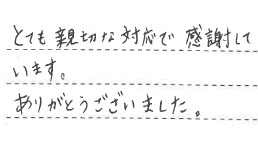 とても親切な対応で感謝して
います。
ありがとうございました。